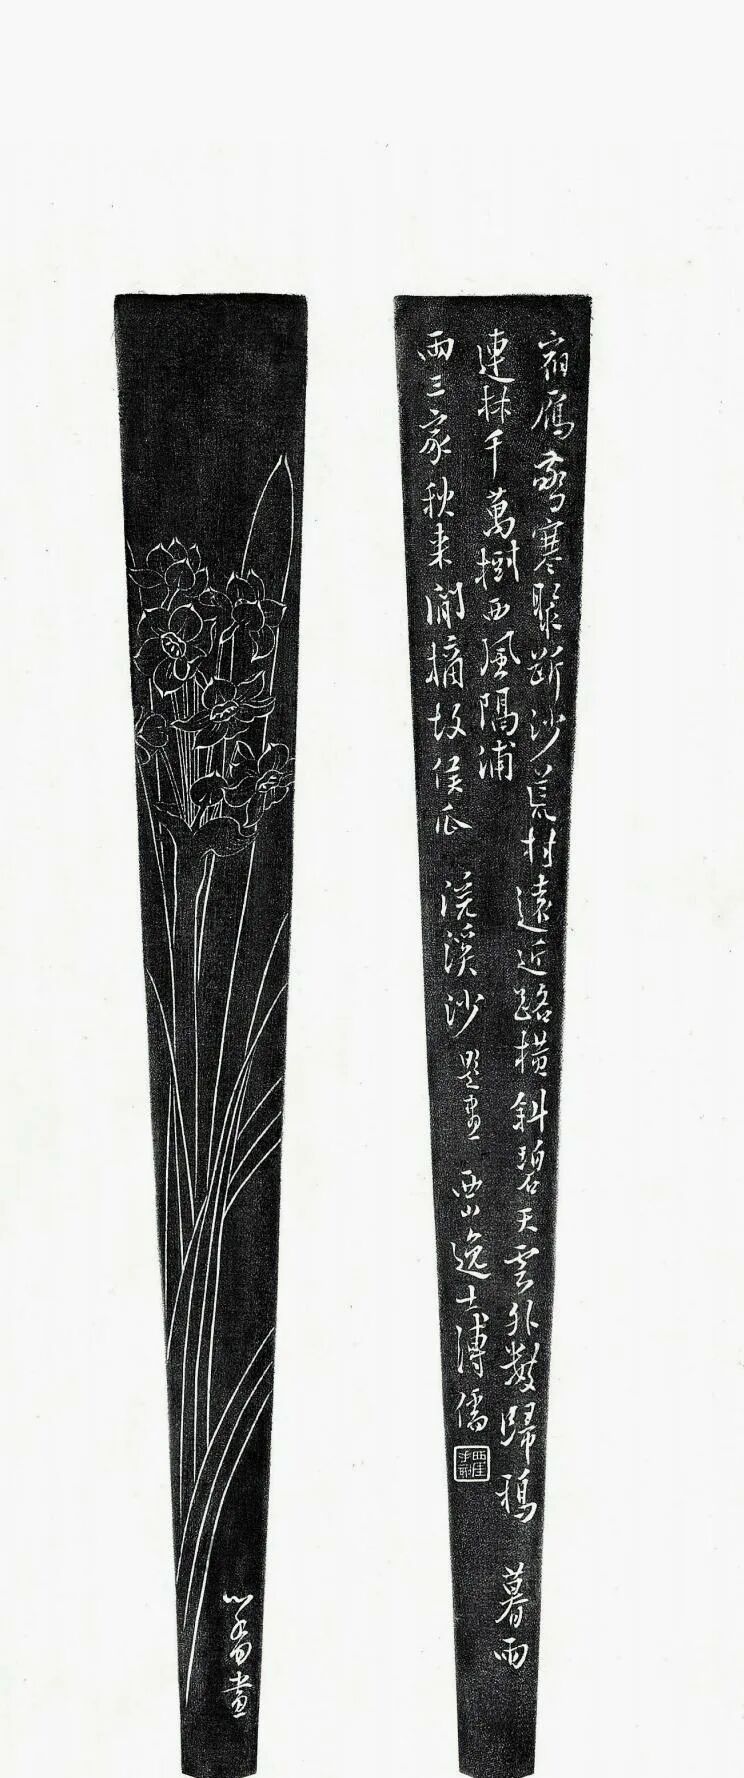 宿雁驚寒聚斷沙荒村遠近路橫斜碧天雲外數歸鴉　暮雨
連林千萬樹西風隔浦
兩三家秋来閒摘故侯瓜　浣溪沙　題畫　西山逸士溥儒
心畬畫